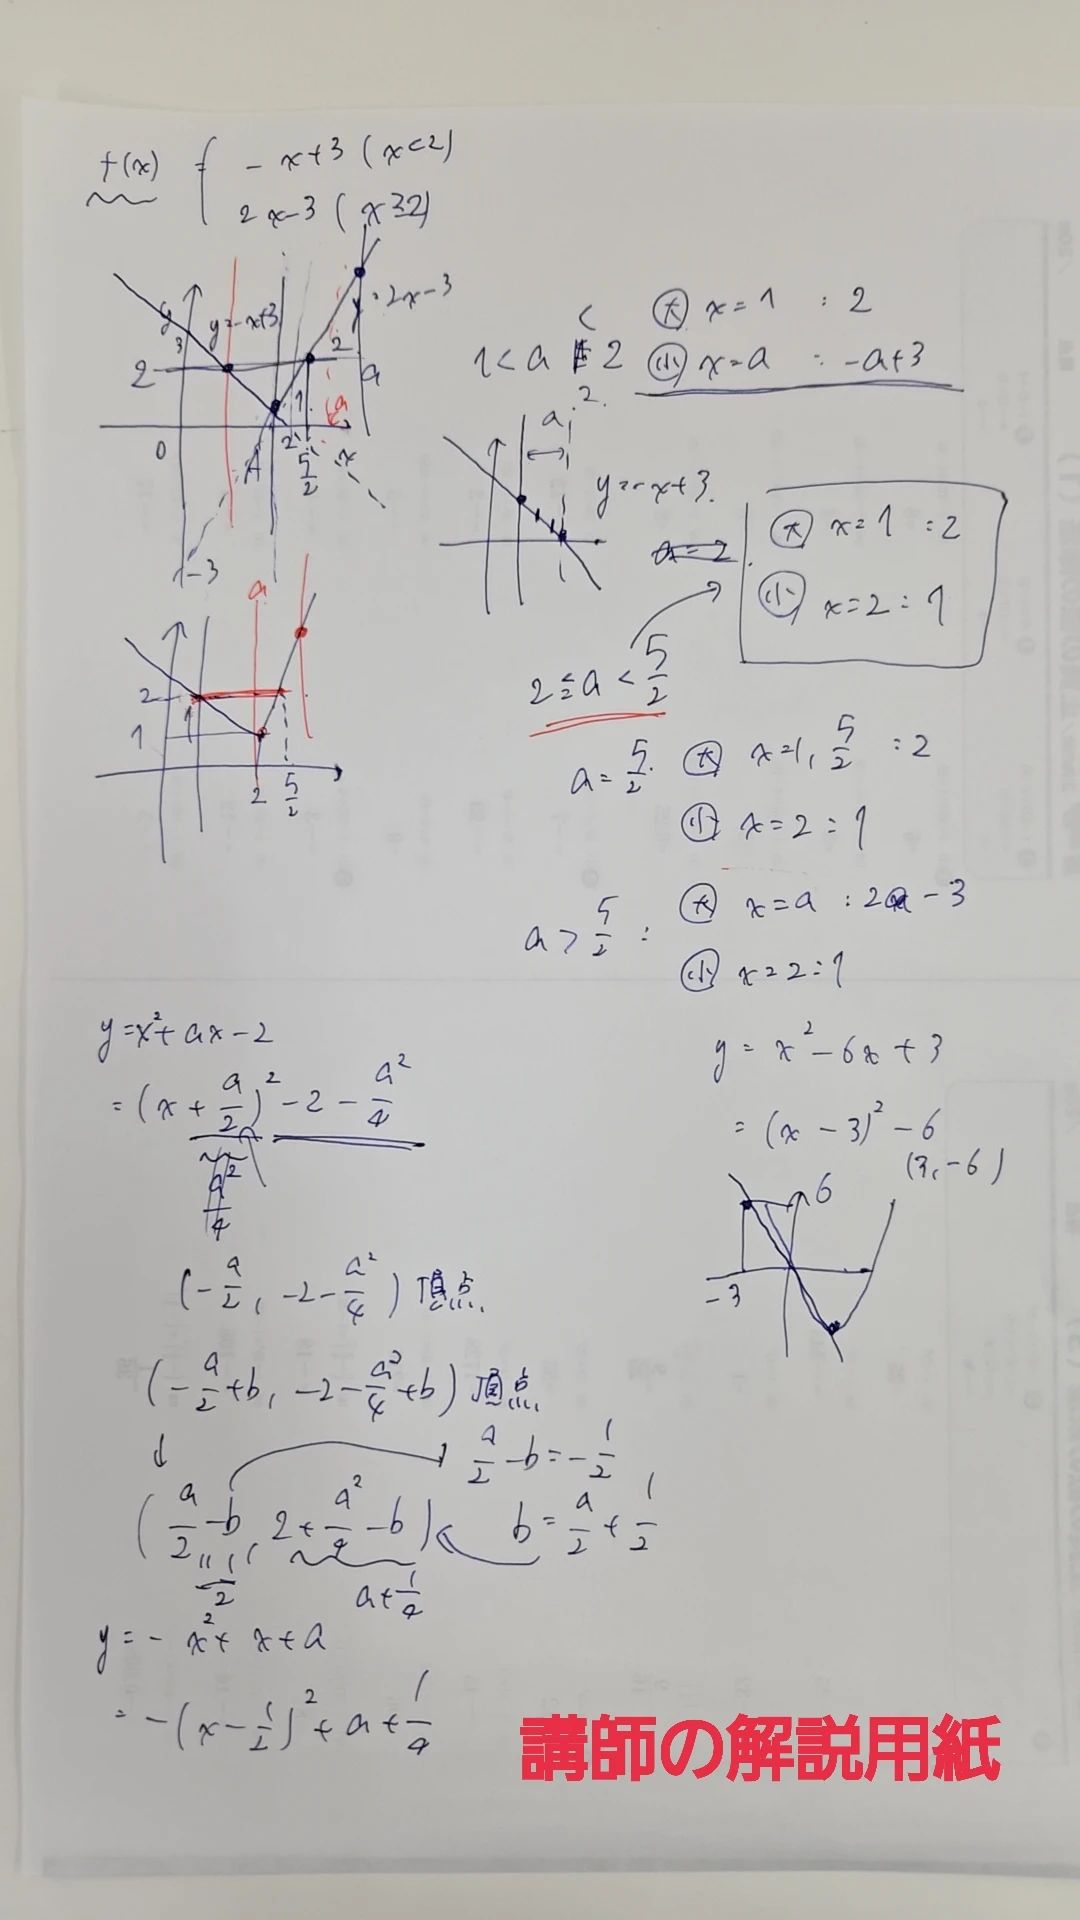 f(x) = { -x+3 (x<2)
2x-3 (x≧2)
y
3
y=-x+3
y=2x-3
2
2
a
1
a
0
A
2
5/2
x
-3
1<a<2 大 x=1 : 2
小 x=a : -a+3
a 2
y=-x+3
a=2
大 x=1 : 2
小 x=2 : 1
a
2
1
1
2
5/2
2≦a<5/2
a=5/2 大 x=1, 5/2 : 2
小 x=2 : 1
a>5/2 : 大 x=a : 2a-3
小 x=2 : 1
y=x²+ax-2
=(x+a/2)²-2-a²/4
a²/4
(-a/2, -2-a²/4) 頂点
(-a/2+b, -2-a²/4+b) 頂点
↓
a/2-b=-1/2
(a/2-b, 2+a²/4-b)
b=a/2+1/2
1/2
a+1/4
y=-x²+x+a
=-(x-1/2)²+a+1/4
y=x²-6x+3
=(x-3)²-6
(3,-6)
6
-3
講師の解説用紙